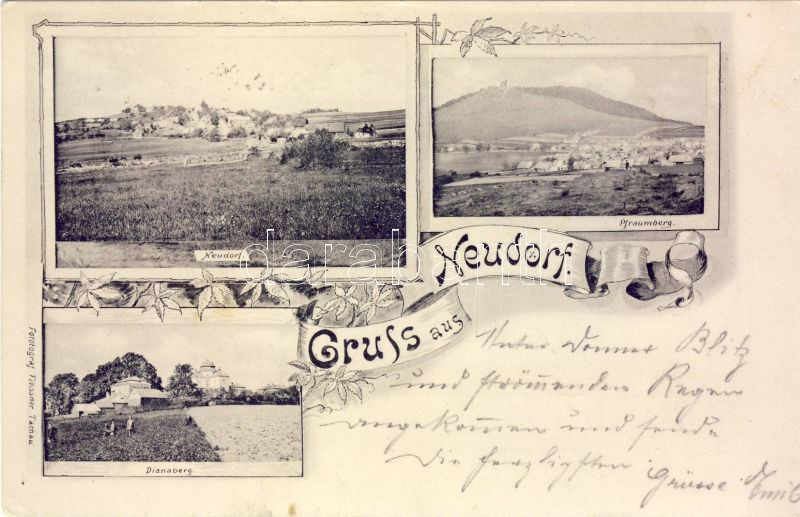 Neudorf.
Pfraumberg.
Gruss aus
Neudorf.
Dianaberg.
Fotograf Fleissner, Tachau
darabanth
Unter Donner Blitz
und strömenden Regen
angekommen und sende
die herzligsten Grüsse
Emil